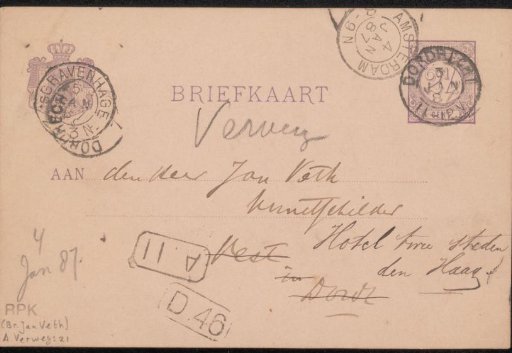 AMSTERDAM
4 JAN 87
6N
DORDRECHT
'SGRAVENHAGE
DORDRECHT
3N
BRIEFKAART
Verwey
AAN den Heer Jan Veth
kunstschilder
Vest Hotel twee steden
in den Haag
Dordt
A 11
D.46
4
Jan 87.
RPK
(Br. Jan Veth)
A Verwey: 21